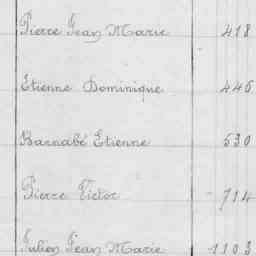 Pierre Jean Marie 418
Etienne Dominique 446
Barnabé Etienne 530
Pierre Victor 714
Julien Jean Marie 1103